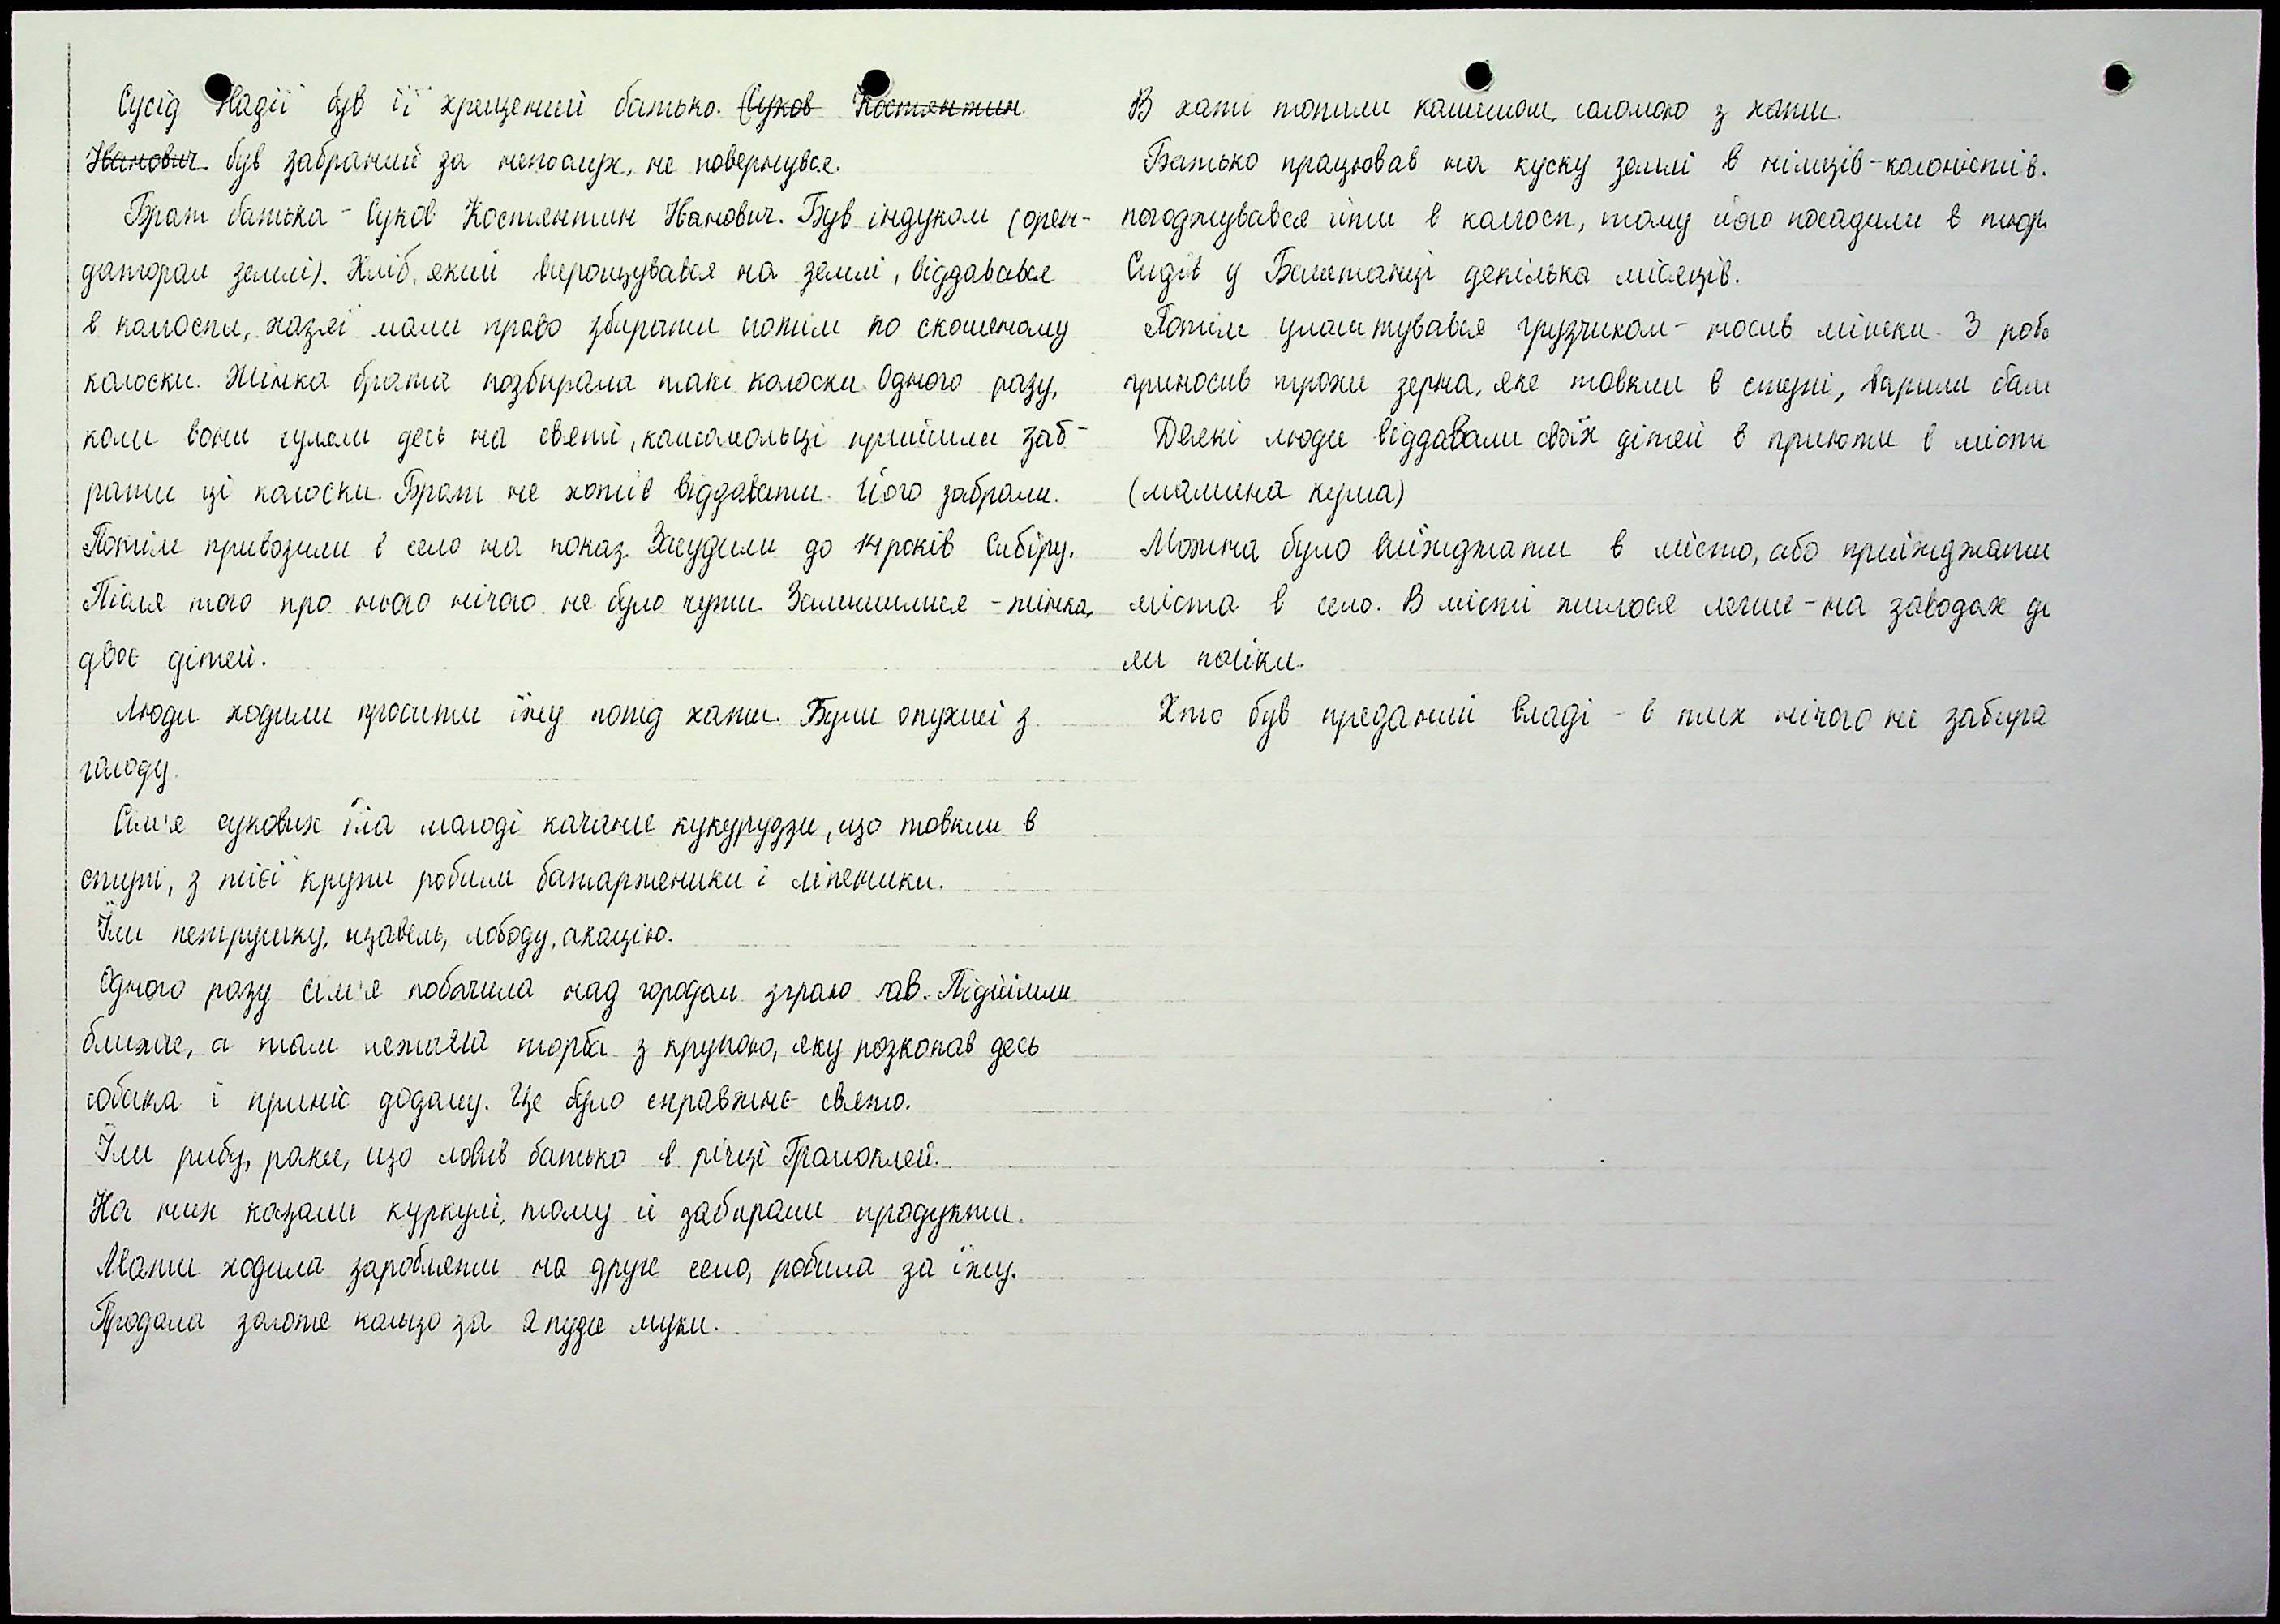 Сусід Надії був її хрещений батько. (Суков Костянтин
Иванович був забраний за непослух, не повернувся.
Брат батька - Суков Костянтин Иванович. Був індуком (орен-
датором землі). Хліб, який вирощувався на землі, віддавався
в колгоспи, хазяї мали право збирати потім по скошеному
колоски. Жінка брата позбирала такі колоски. Одного разу,
коли вони гуляли десь на святі, комсомольці прийшли заб-
рати ці колоски. Брат не хотів віддавати. Його забрали.
Потім привозили в село на показ. Засудили до 14 років Сибіру.
Після того про нього нічого не було чути. Залишилися - жінка,
двоє дітей.
Люди ходили просити їжу попід хати. Були опухлі з
голоду.
Сім'я сукових їла молоді качани кукурудзи, що товкли в
ступі, з тієї крупи робили баторженики і ліпеники.
Їли петрушку, щавель, лободу, акацію.
Одного разу сім'я побачила над городом зграю гав. Підійшли
ближче, а там лежала торба з крупою, яку розкопав десь
собака і приніс додому. Це було справжнє свято.
Їли рибу, раки, що ловив батько в річці Громоклей.
На них казали куркулі, тому й забирали продукти.
Мати ходила заробляти на друге село, робила за їжу.
Продала золоте кольцо за 2 пуди муки.
В хаті топили камишом, соломою з хати.
Батько працював на куску землі в німців-колоністів.
погоджувався іти в колгосп, тому його посадили в тюр
Сидів у Баштанці декілька місяців.
Потім улаштувався грузчиком - носив мішки. З робо
приносив трохи зерна, яке товкли в ступі, варили бал
Деякі люди віддавали своїх дітей в приюти в місти
(мамина кума)
Можна було виїжджати в місто, або приїжджати
міста в село. В місті жилося легше - на заводах да
ли пайки.
Хто був преданий владі - в тих нічого не забира